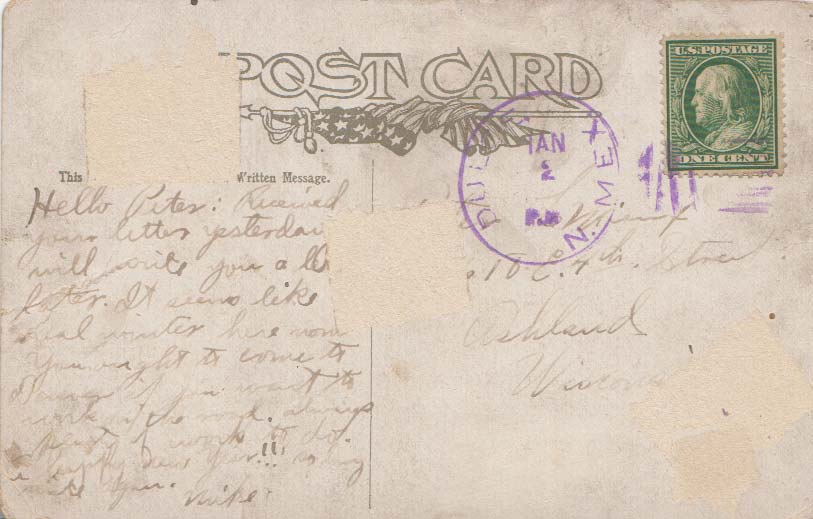 POST CARD
U.S. POSTAGE
ONE CENT
JAN
2
P.M.
N. MEX
This
Written Message.
Hello Peter: Received
your letter yesterday
will write you a
later. It seems like
real winter here now
You ought to come to
Denver if you want to
work on the road. always
plenty of work to do.
Happy New Year!!!
Mike.
16 E. 7th. Street
Ashland
Wisconsin